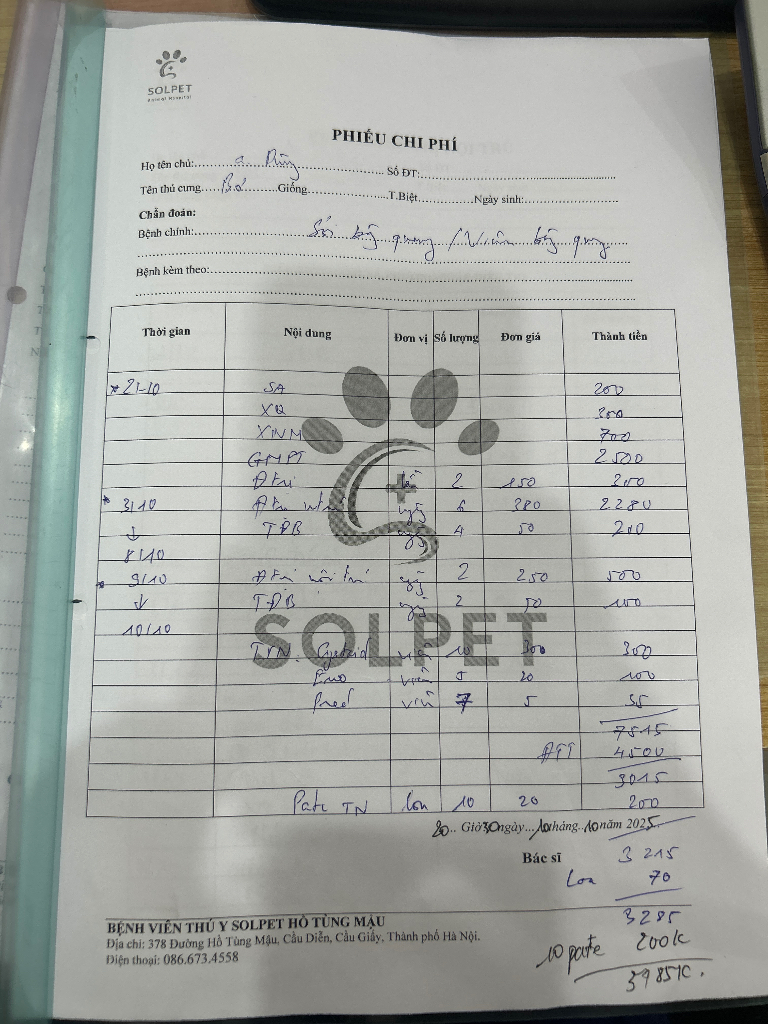 SOLPET
Animal Hospital
PHIẾU CHI PHÍ
Họ tên chủ: a Dũng Số ĐT:
Tên thú cưng Bơ Giống T.Biệt Ngày sinh:
Chẩn đoán:
Bệnh chính: Sỏi bàng quang / Viêm bàng quang
Bệnh kèm theo:
Thời gian Nội dung Đơn vị Số lượng Đơn giá Thành tiền
* 21-10 SA 200
XQ 300
XNM 700
GMPT 2500
Đtrị 2 150 300
* 3/10 Đtrị 6 380 2280
↓ TĐB 4 50 200
8/10
* 9/10 Đtrị nội trú 2 250 500
↓ TĐB 2 50 100
10/10
SOLPET
TVN. 10 300 300
viên 5 20 100
Pred viên 7 5 35
7515
ĐTT 4500
3015
Pate TN lon 10 20 200
20 Giờ 30 ngày 10 tháng 10 năm 2025
Bác sĩ 3215
Lon 70
3285
10 pate 200k
3985K.
BỆNH VIÊN THÚ Y SOLPET HỒ TÙNG MẬU
Địa chỉ: 378 Đường Hồ Tùng Mậu, Cầu Diễn, Cầu Giấy, Thành phố Hà Nội.
Điện thoại: 086.673.4558